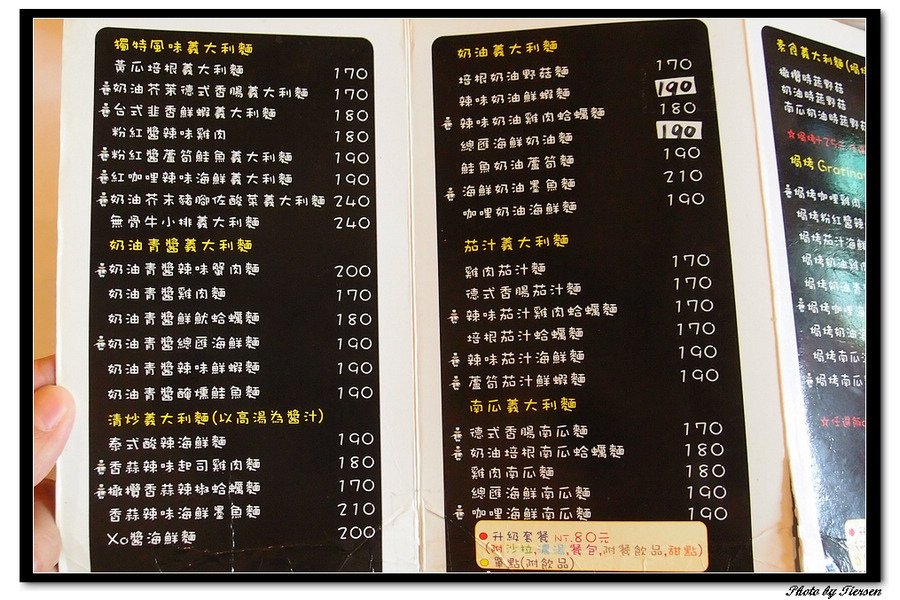 獨特風味義大利麵
黃瓜培根義大利麵 170
奶油芥茉德式香腸義大利麵 170
台式韭香鮮蝦義大利麵 180
粉紅醬辣味雞肉 180
粉紅醬蘆筍鮭魚義大利麵 190
紅咖哩辣味海鮮義大利麵 190
奶油芥末豬腳佐酸菜義大利麵 240
無骨牛小排義大利麵 240
奶油青醬義大利麵
奶油青醬辣味蟹肉麵 200
奶油青醬雞肉麵 170
奶油青醬鮮魷蛤蠣麵 180
奶油青醬總匯海鮮麵 190
奶油青醬辣味鮮蝦麵 190
奶油青醬醃燻鮭魚麵 190
清炒義大利麵(以高湯為醬汁)
泰式酸辣海鮮麵 190
香蒜辣味起司雞肉麵 180
橄欖香蒜辣椒蛤蠣麵 170
香蒜辣味海鮮墨魚麵 210
Xo醬海鮮麵 200
奶油義大利麵
培根奶油野菇麵 170
辣味奶油鮮蝦麵 190
辣味奶油雞肉蛤蠣麵 180
總匯海鮮奶油麵 190
鮭魚奶油蘆筍麵 190
海鮮奶油墨魚麵 210
咖哩奶油海鮮麵 190
茄汁義大利麵
雞肉茄汁麵 170
德式香腸茄汁麵 170
辣味茄汁雞肉蛤蠣麵 170
培根茄汁蛤蠣麵 170
辣味茄汁海鮮麵 190
蘆筍茄汁鮮蝦麵 190
南瓜義大利麵
德式香腸南瓜麵 170
奶油培根南瓜蛤蠣麵 180
雞肉南瓜麵 180
總匯海鮮南瓜麵 190
咖哩海鮮南瓜麵 190
升級套餐 NT.80元
(附沙拉,濃湯,餐包,附餐飲品,甜點)
單點(附飲品)
素食義大利麵(焗烤
橄欖時蔬野菇
奶油時蔬野菇
南瓜奶油時蔬野菇
☆焗烤+75元
焗烤 Gratina
焗烤咖哩雞肉
焗烤粉紅醬辣
焗烤茄汁海鮮
焗烤奶油雞肉
焗烤奶油青
焗烤咖哩海
焗烤奶油海
焗烤南瓜海
焗烤南瓜
☆任選
Photo by Tiersen